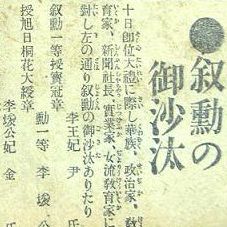 ●叙勲の
御沙汰
十日卽位大禮に際し華族、政治家、敎
育家、新聞社長、實業家、女流敎育家に
對し左の通り叙勳の御沙汰ありたり
李王妃 尹 氏
叙勳一等授寶冠章
勳一等 李 堈
授旭日桐花大綬章
李堈公妃 金 氏